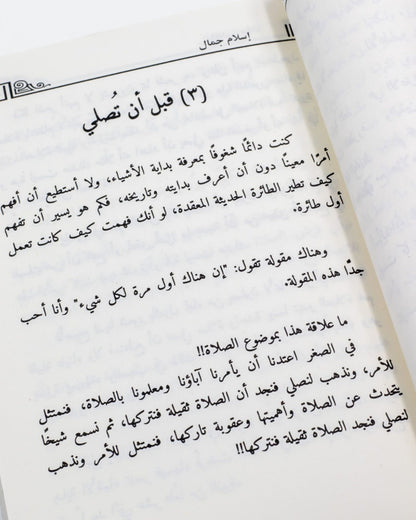 إسلام جمال
(٣) قبل أن تُصلي
كنت دائمًا شغوفًا بمعرفة بداية الأشياء، ولا أستطيع أن أفهم
أمرًا معينًا دون أن أعرف بدايته وتاريخه، فكم هو يسير أن تفهم
كيف تطير الطائرة الحديثة المعقدة، لو أنك فهمت كيف كانت تعمل
أول طائرة.
وهناك مقولة تقول: "إن هناك أول مرة لكل شيء" وأنا أحب
جدًا هذه المقولة.
ما علاقة هذا بموضوع الصلاة!!
في الصغر اعتدنا أن يأمرنا آباؤنا ومعلمونا بالصلاة، فنمتثل
للأمر، ونذهب لنصلي فنجد أن الصلاة ثقيلة فنتركها، ثم نسمع شيخًا
يتحدث عن الصلاة وأهميتها وعقوبة تاركها، فنمتثل للأمر ونذهب
لنصلي فنجد الصلاة ثقيلة فنتركها!!